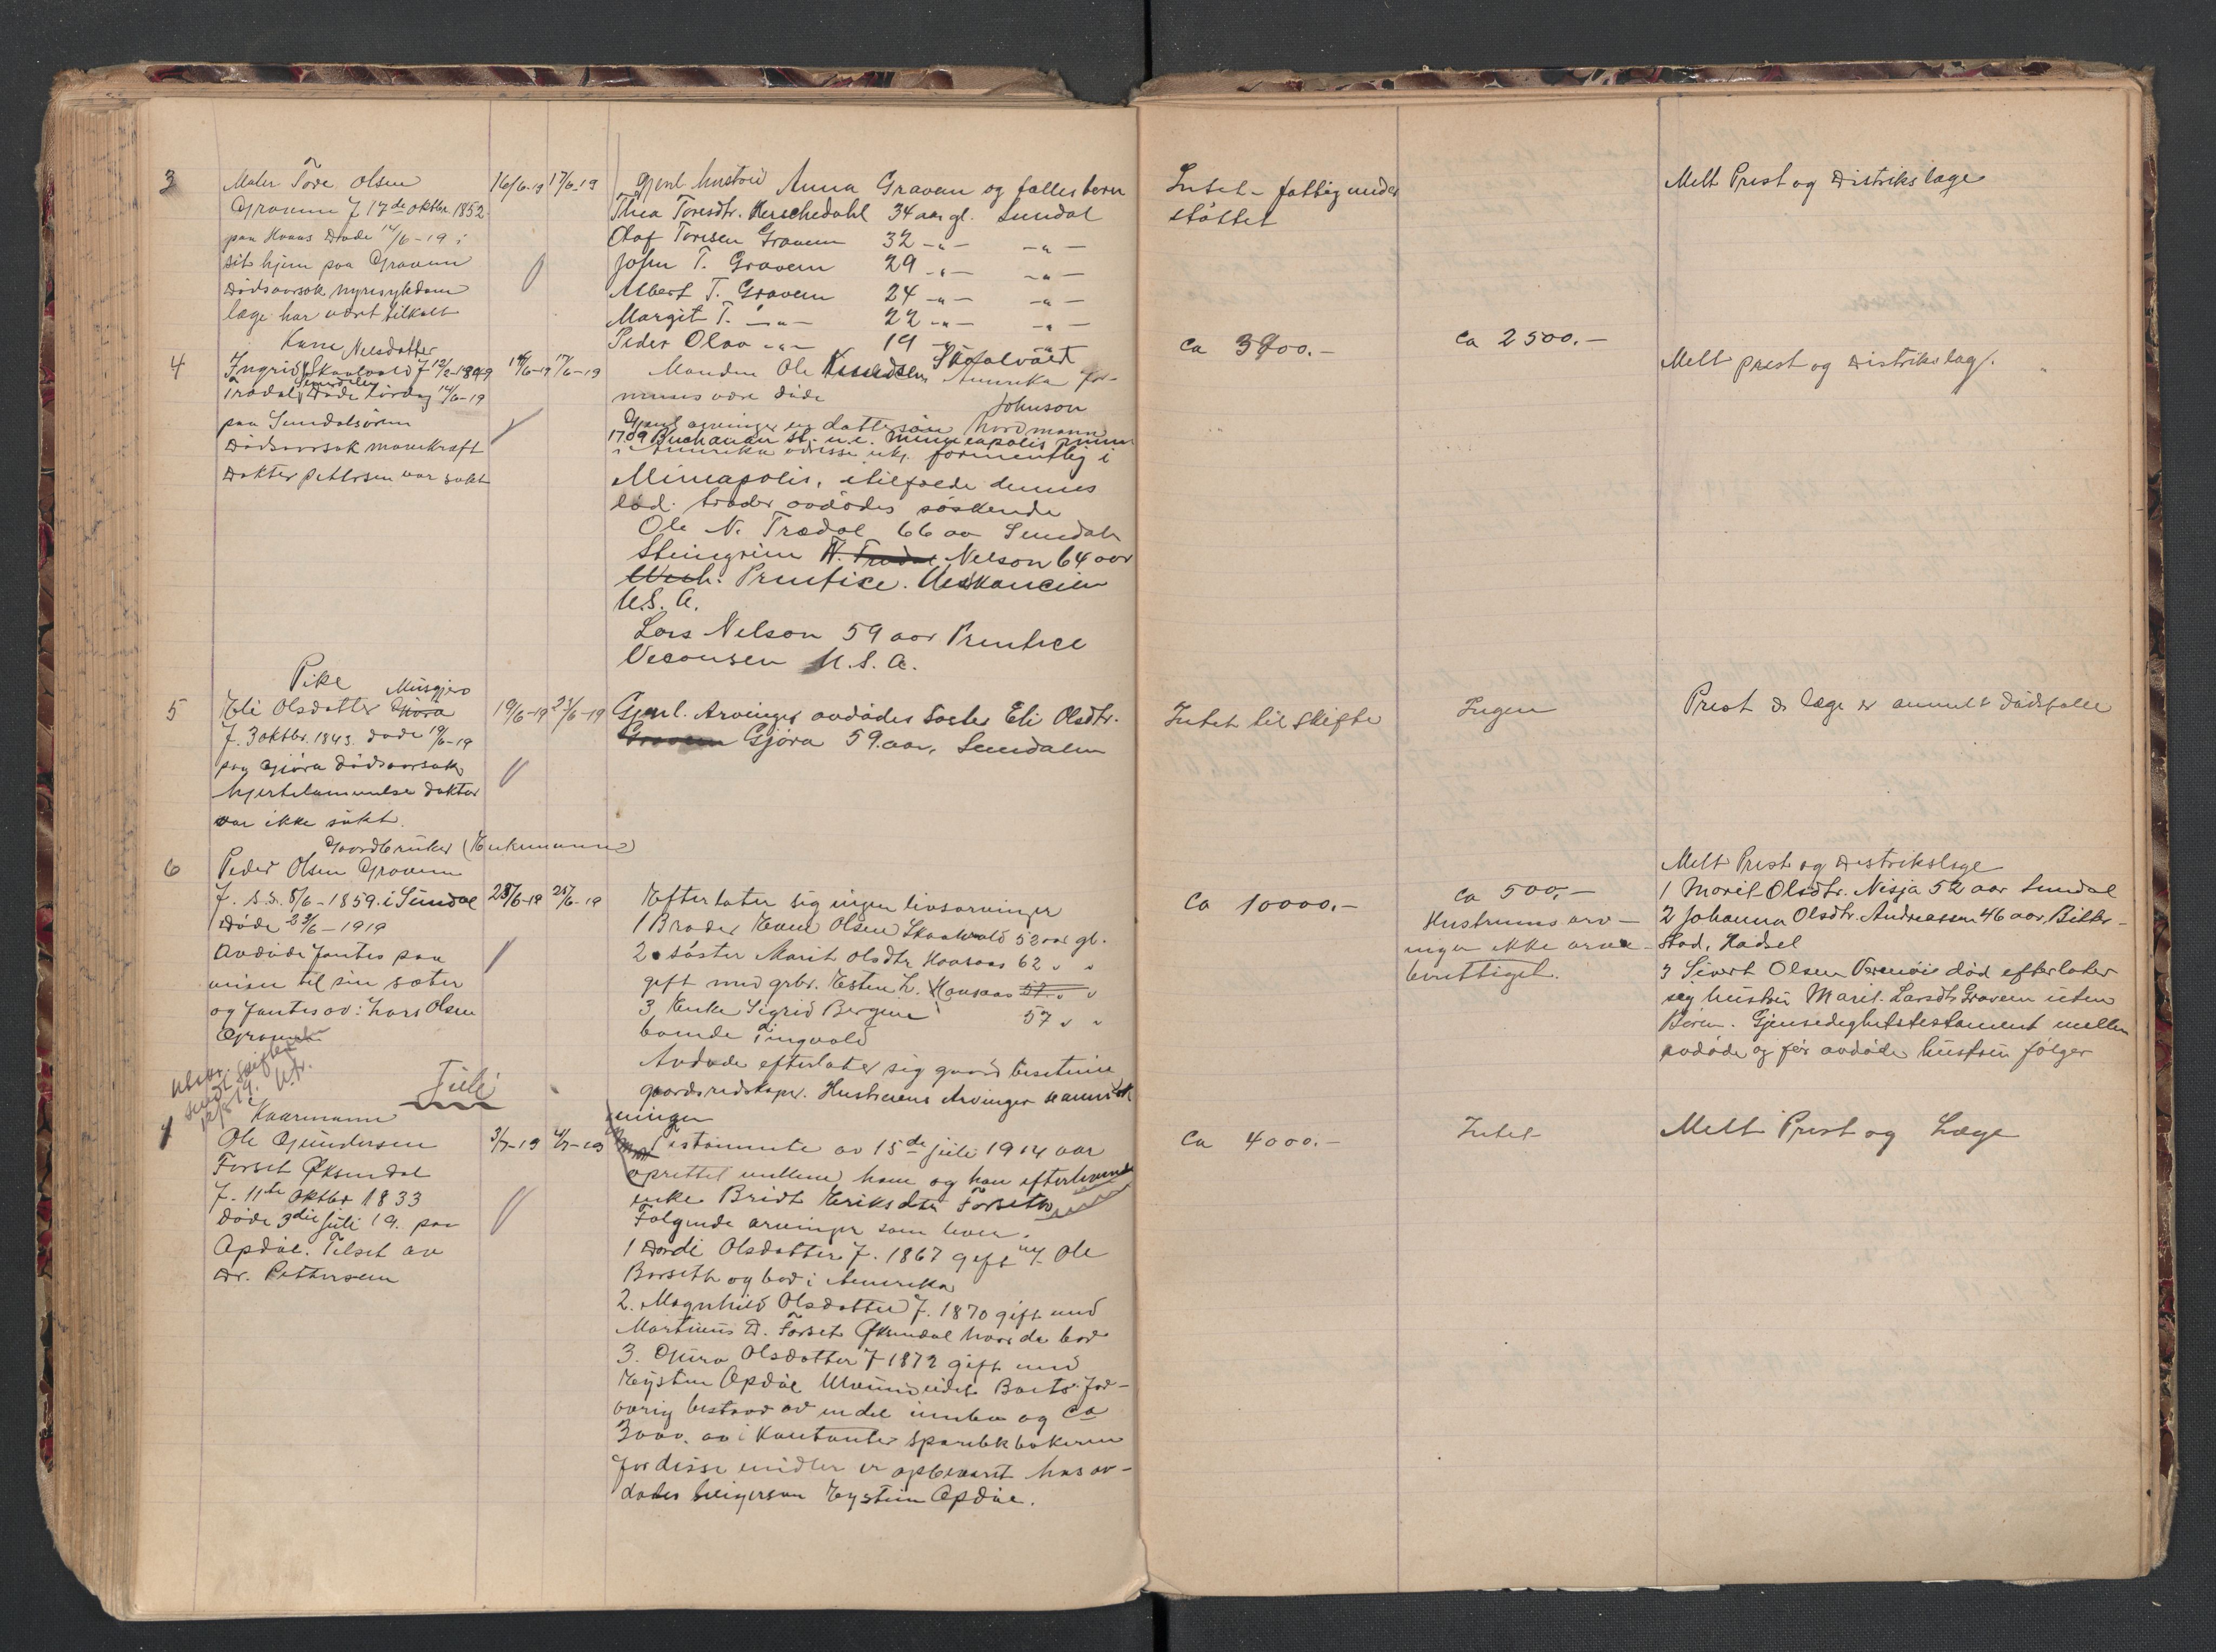 3
Maler Tore Olsen
Gravem f. 17de oktbr 1852
paa Horvs Døde 14/6-19 i
sit hjem paa Gravem
Dødsaarsak nyresykdom
læge har vært tilkalt
16/6-19 17/6-19
Gjenl. hustru Anna Gravem og fælles børn
Thea Toresdtr. 34 aar gl. Sundal
Olaf Toresen Gravem 32 -"- -"-
John T. Gravem 29 -"- -"-
Albert T. Gravem 24 -"- -"-
Margit T. -"- 22 -"- -"-
Peder Olav -"- 19 -"-
Intet - fattigunder
støttet
Melt Prest og Distrikslæge
4
Kone Nelsdatter
Ingrid Skaalvold f 12/2-1849
Trædal, Sundalen Døde Lørdag 14/6-19
paa Sundalsøren
Dødsaarsak mavekræft
Dokter Pettersen var søkt
16/6-19 17/6-19
Manden Ole Knudsen Skaalvold Amerika for-
menes være døde
Johnson
Gjenl. arvinger en dattersøn Nordmann
1709 Buchanan St. n.e. Minneapolis Minn
i Amerika adresse uk. formentlig i
Mineapolis, i tilfælde dennes
død. træder avdødes søskende
Ole N. Trædal 66 aar Sundalen
Steingrim N. Trædal Nelson 64 aar
Prentice.
U.S. A.
Lars Nelson 59 aar Prentice
Veconsen U.S.A.
ca 3800.-
ca 2500.-
Melt prest og Distrikslæge.
5
Pike Musgjerd
Eli Olsdatter Gjøra
f. 3 oktbr. 1843. døde 19/6-19
paa Gjøra dødsaarsak
hjertelammelse doktor
var ikke søkt.
19/6-19 23/6-19
Gjenl. Arvinger avdødes Søster Eli Olsdtr.
Gravem Gjøra 59 aar, Sundalen
Intet til skifte
Ingen
Prest & læge er anmelt dødsfallet
6
Gaardbruker (Enkemann)
Peder Olsen Gravem
f. d.d. 8/6-1859. i Sundal
Døde 23/6-1919
Avdøde fantes paa
veien til sin sæter
og fantes av: Lars Olsen
Gravem
25/6-19 25/6-19
Efterlater sig ingen livsarvinger
1 Broder Even Olsen Skaalvold 52 aar gl.
2 søster Marit Olsdtr Hoaas 62 " "
gift med grbr. Esten L. Hoaas
3 Enke Sigrid Bergem 57 " "
boende Tingvold
Avdøde efterlater sig gaard besetning
gaardsredskaper. Hustruens Arvinger
ningen
ca 10000.-
ca 500,-
Hustruens arv-
inger ikke arve-
berettiget.
Melt Prest og Distrikslæge
1 Marit Olsdtr. Nisja 52 aar Sundal
2 Johanna Olsdtr. Andreassen 46 aar, Bitter-
stad, Hadsel
3 Sivert Olsen død efterlater
sig hustru Marit Larsdtr Gravem uten
Børn. Gjensidighetstestament mellem
avdøde og før avdøde hustru følger
Juli
1
Kaarmann
Ole Gundersen
Forset Øksendal
f. 11te oktbr 1833
Døde 3die juli 19. paa
Opdøl. Tilset av
Dr. Pettersen
3/7-19 4/7-19
Testamente av 15de juli 1914 var
oprettet mellem ham og han efterlevende
enke Bridt Eriksdtr Forseth
Følgende arvinger som lever.
1 Dordi Olsdatter f. 1867 gift m/ Ole
Borseth og bor i Amerika
2. Magnhild Olsdatter f. 1870 gift med
Martinus D. Forset Øksendal hvor de bor
3. Gjura Olsdatter f 1872 gift med
Eysten Opdøl Boets for-
øvrig bestaar av en del innbo og ca
3000. av i Kontanter sparebkbøkerne
for disse midler er opbevaret hos av-
dødes svigersøn Eystein Opdøl.
Ca 4000.-
Intet
Melt Prest og Læge